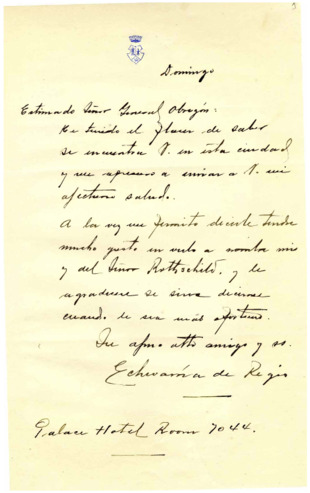 Domingo
Estimado Señor General Obregón:
He tenido el placer de saber
se encuentra V. en esta ciudad
y me apresuro a enviar a V. mi
afectuoso saludo.
A la vez me permito decirle tendré
mucho gusto en verlo a nombre mio
y del Señor Rothschild, y le
agradeceré se sirva decirme
cuando le sea más oportuno.
Su afmo atto amigo y ss.
Echevarría de Regio
Palace Hotel Room 7044.